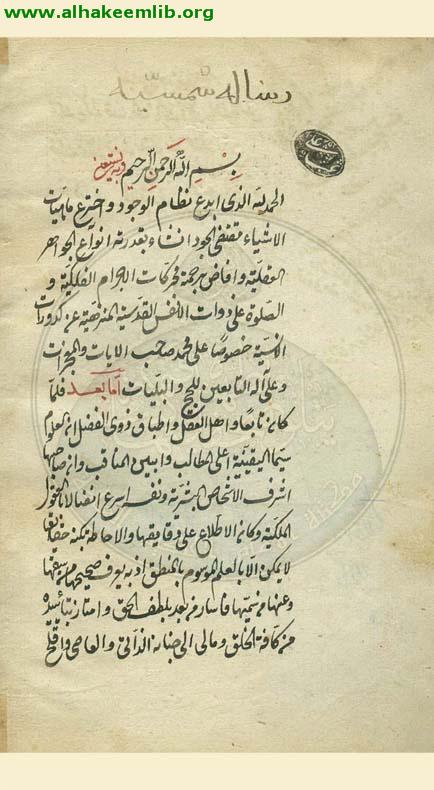 www.alhakeemlib.org
رسالة شمسية
بسم الله الرحمن الرحيم وبه نستعين
الحمد لله الذى ابدع نظام الوجود واخترع ماهيات
الاشياء بمقتضى الجود انشاء بقدرته انواع الجواهر
العقلية وافاض برحمته محركات الاجرام الفلكية و
الصلوة على ذوات الانفس القدسية المنزهة عن كدورات
الانسية خصوصا على محمد صاحب الايات والمعجزات
وعلى آله التابعين للحجج والبينات اما بعد فلما
كان باتفاق اهل العقل واطباق ذوى الفضل ان العلوم
سيما اليقينية اعلى المطالب وابين المناقب وان صاحبها
اشرف الاشخاص البشرية ونفسه اسرع اتصالا بالعقول
الملكية وكان الاطلاع على دقايقها والاحاطة بكنه حقايقها
لا يمكن الا بالعلم الموسوم بالمنطق اذ به يعرف صحيحها من سقيمها
وغثها من سمينها فاشار من سعد بلطف الحق وامتاز بتائيده
من كافة الخلق ومال الى جنابه الدانى والقاصى وافلح